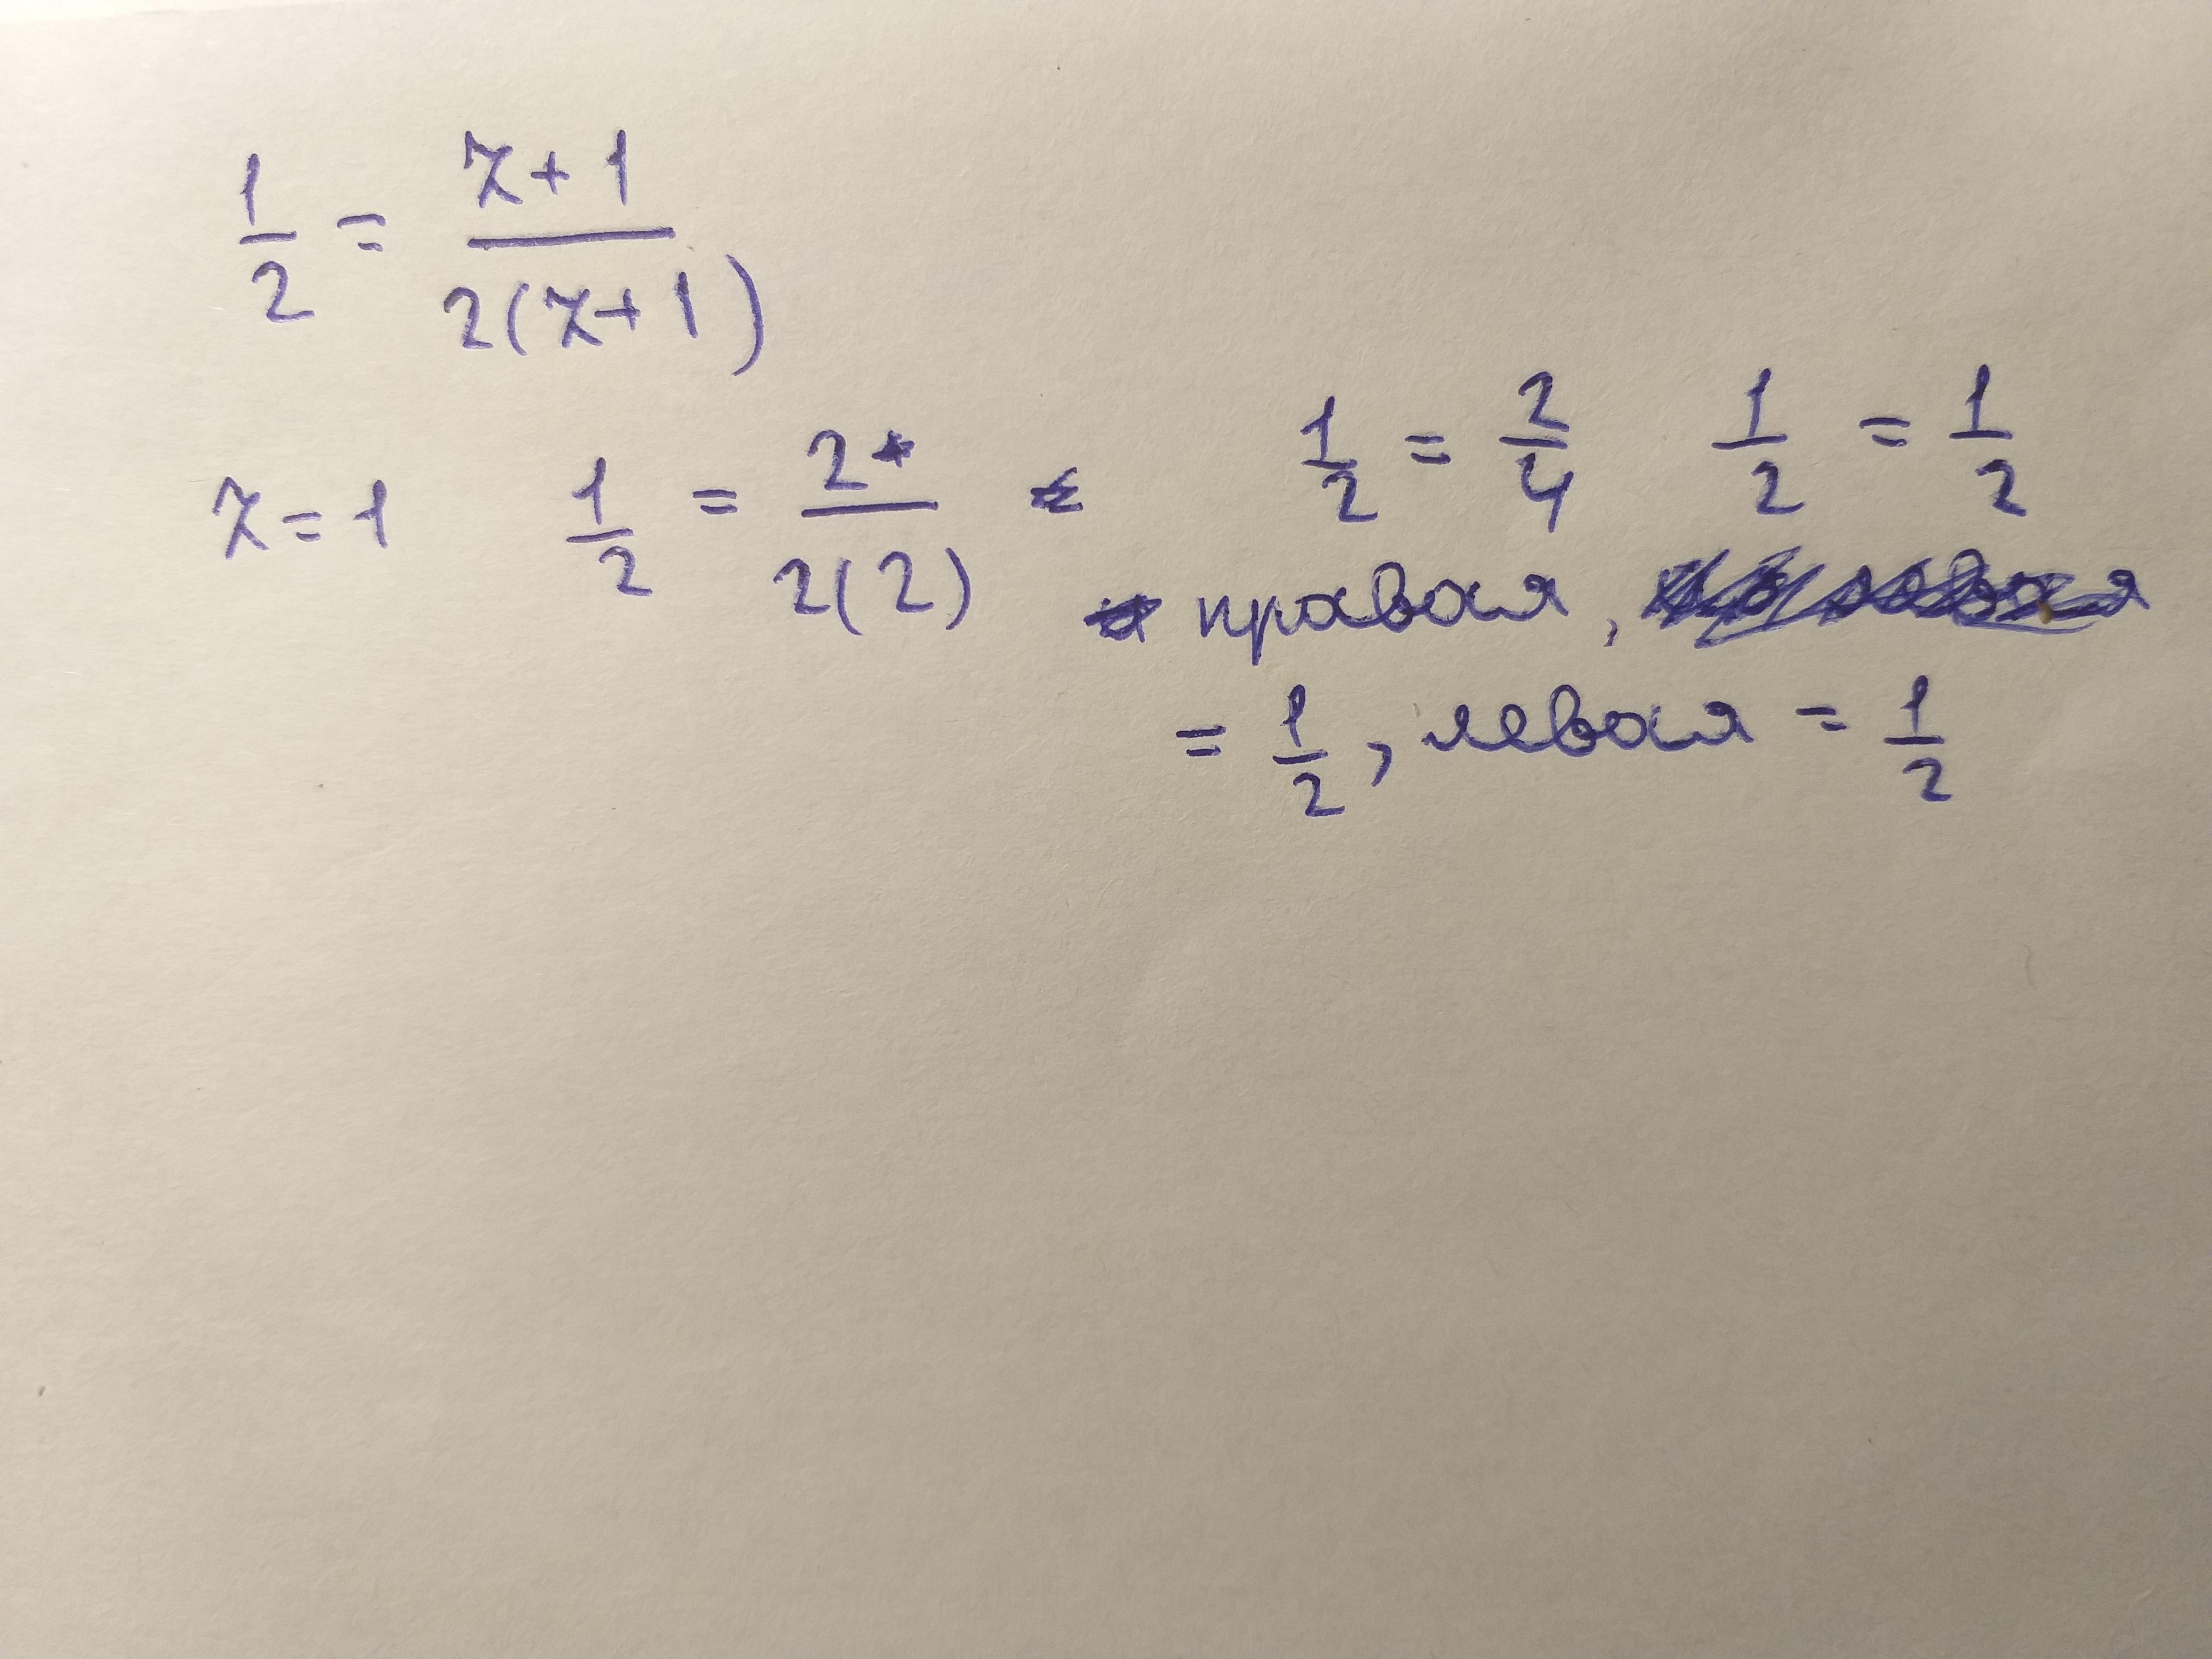 1/2 = z+1 / 2(z+1)
z=1 1/2 = 2 / 2(2) 1/2 = 2/4 1/2 = 1/2
правая,
= 1/2, левая = 1/2